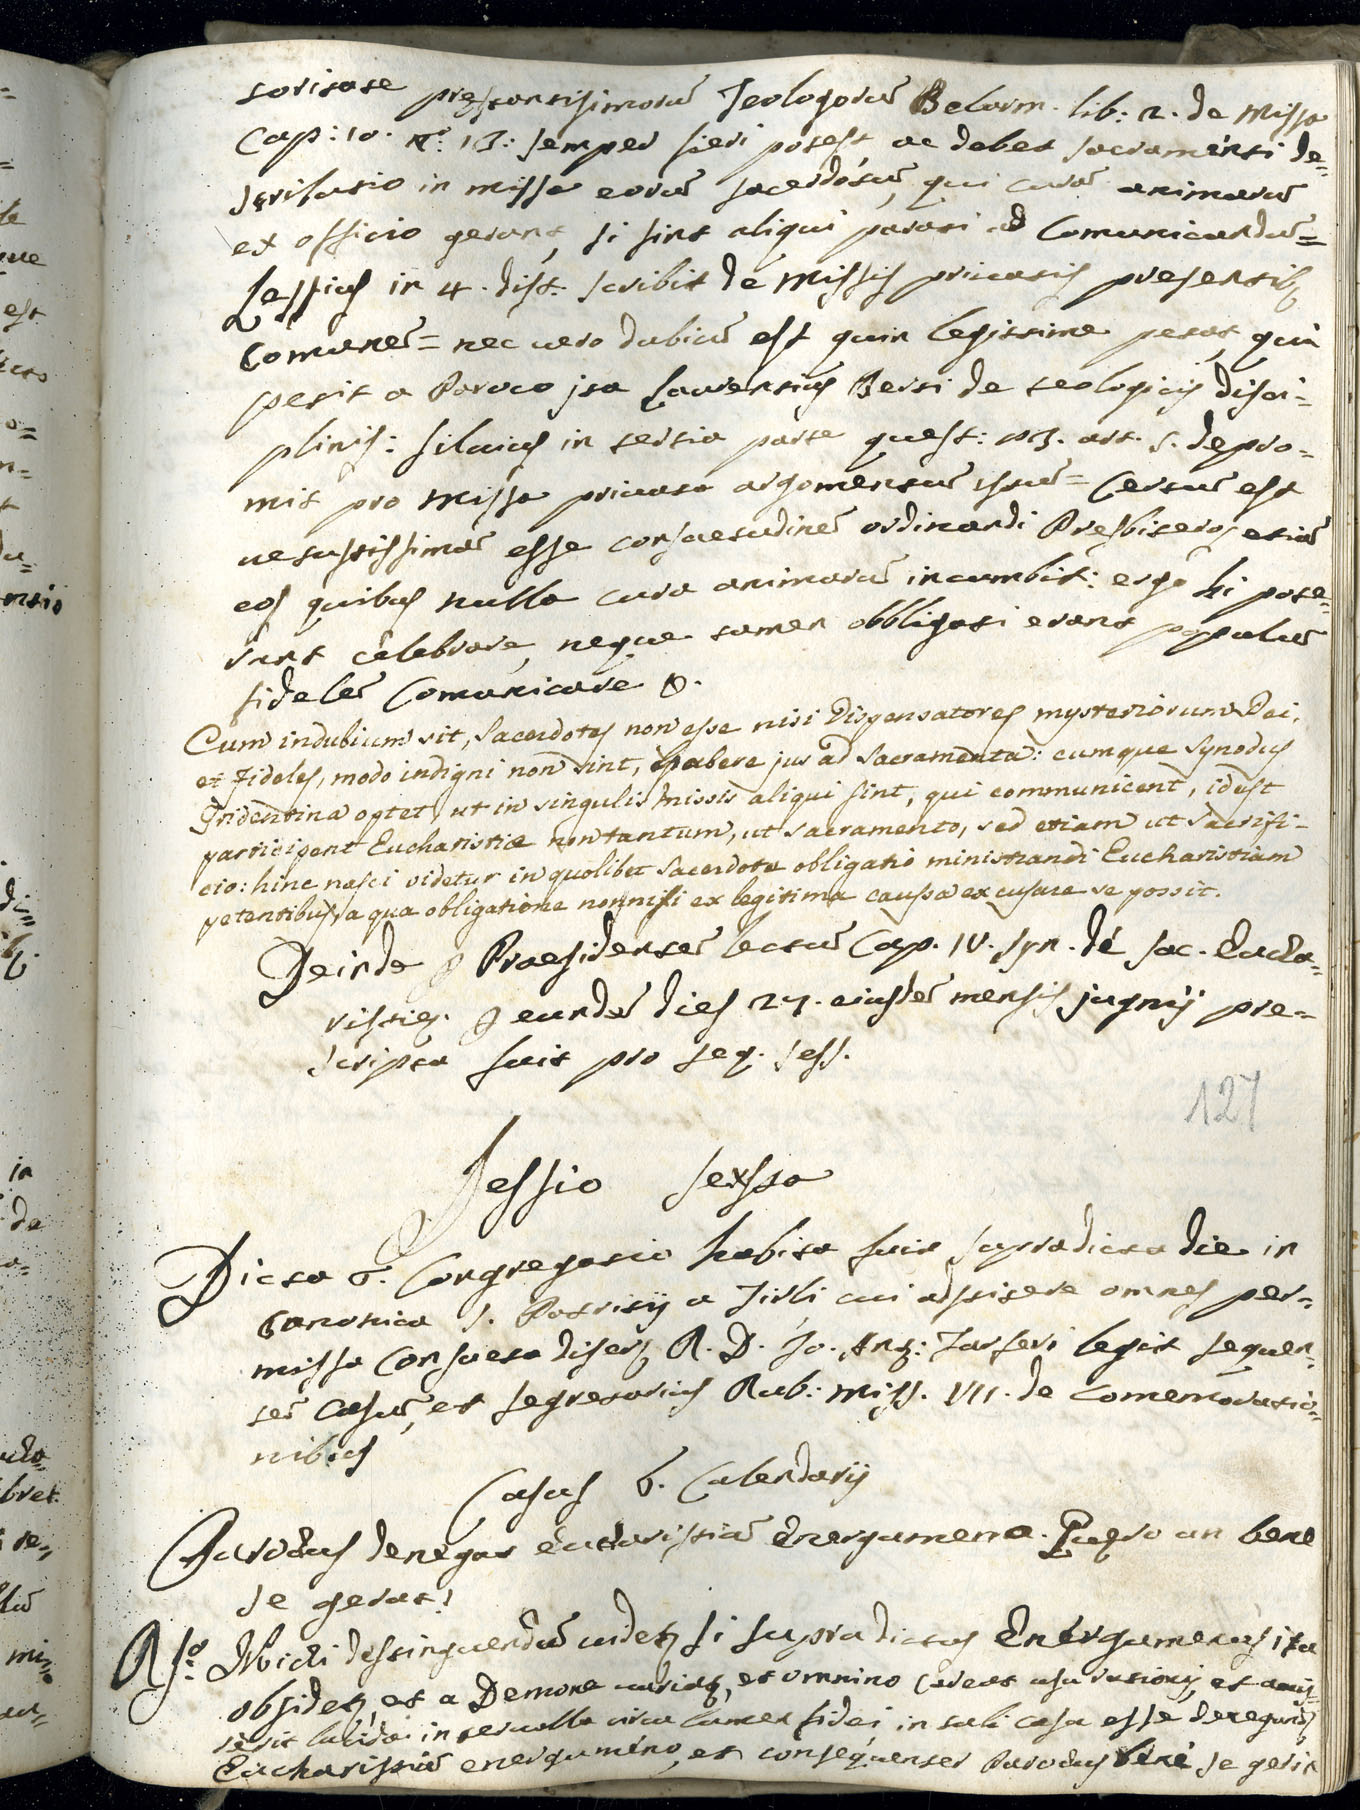 toritate prestantisimorū Teologorū Belarm. lib: 2. de Missa
Cap: 10. N.º 13: semper fieri potest ac debet sacramenti de=
stributio in missa eorū sacerdotū, qui curā animarū
ex officio gerant, si sint aliqui parati ad Comunicandū=
Lessius in 4. dist. scribit de Missis priuatis presentib;
Comunem= nec uero dubiū est quin legittime petat, qui
petit a Paroco ita Laurentius Berti de teologicis disci-
plinis: Siluius in tertia parte quest: 83. art. 5. depro=
mit pro Missa priuata argomentū istū= Certū est
uetustissimā esse consuetudinē ordinandi Presbiteros etiā
eos quibus nulla cura animarū incumbit: ergo hi pote=
runt celebrare, neque tamen obbligati erant populū
fidelē Comunicare &.
Cum indubium sit, Sacerdotes non esse nisi Dispensatores mysteriorum Dei,
et Fideles, modo indigni non sint, habere jus ad Sacramenta: cumque Synodus
Tridentina optet, ut in singulis missis aliqui sint, qui communicent, idest
participent Eucharistiæ non tantum, ut Sacramento, sed etiam ut Sacrifi-
cio: hinc nasci videtur in quolibet Sacerdote obligatio ministrandi Eucharistiam
petentibus, a qua obligatione nonnisi ex legitima caussa excusare se possit.
Deinde p Praesidentē lectū Cap. IV. Syn. de Sac. Eucha=
ristię. p eundē dies 27. eiusdē mensis jugnij pre=
scripta fuit pro seq. sess.
127
Sessio sexta
Dicta 6. Congregatio habita fuit supradicta die in
Canonica S. Patritij a Tirli cui adfistere omnes per=
missa Consueta diserų R. D. Jo. Ang: Tarseri legit sequen=
tē Casū, et segretarius Rub: Miss. VII. de Comemoratio=
nibus
Casus 6. Calendarij
Parochus denegat eucharistiā Energumeno. Quęro an bene
se gerat!
Rso: Michi destinguendū uidetų si supra dictus Energumenus ita
obsidetų, et a Demone uexetų, et omnino careat usu rationis, et amis=
serit lucida interualla una lumen fidei in tali casu esse denegandā
Eucharistiā energumeno, et consequenter Parochus bene se gerit